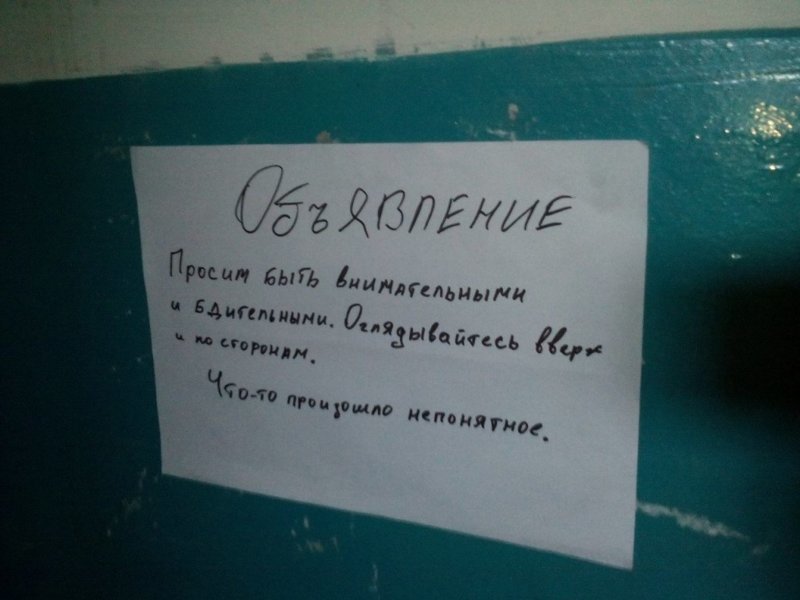 Объявление
Просим быть внимательными
и бдительными. Оглядывайтесь вверх
и по сторонам.
Что-то произошло непонятное.